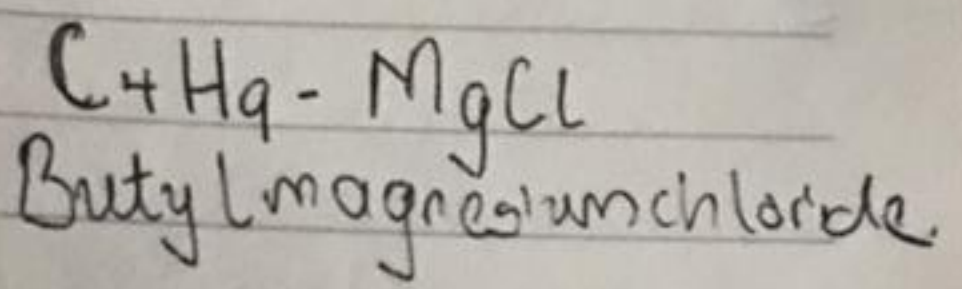 C4H9 - MgCl
Butylmagnesiumchloride.